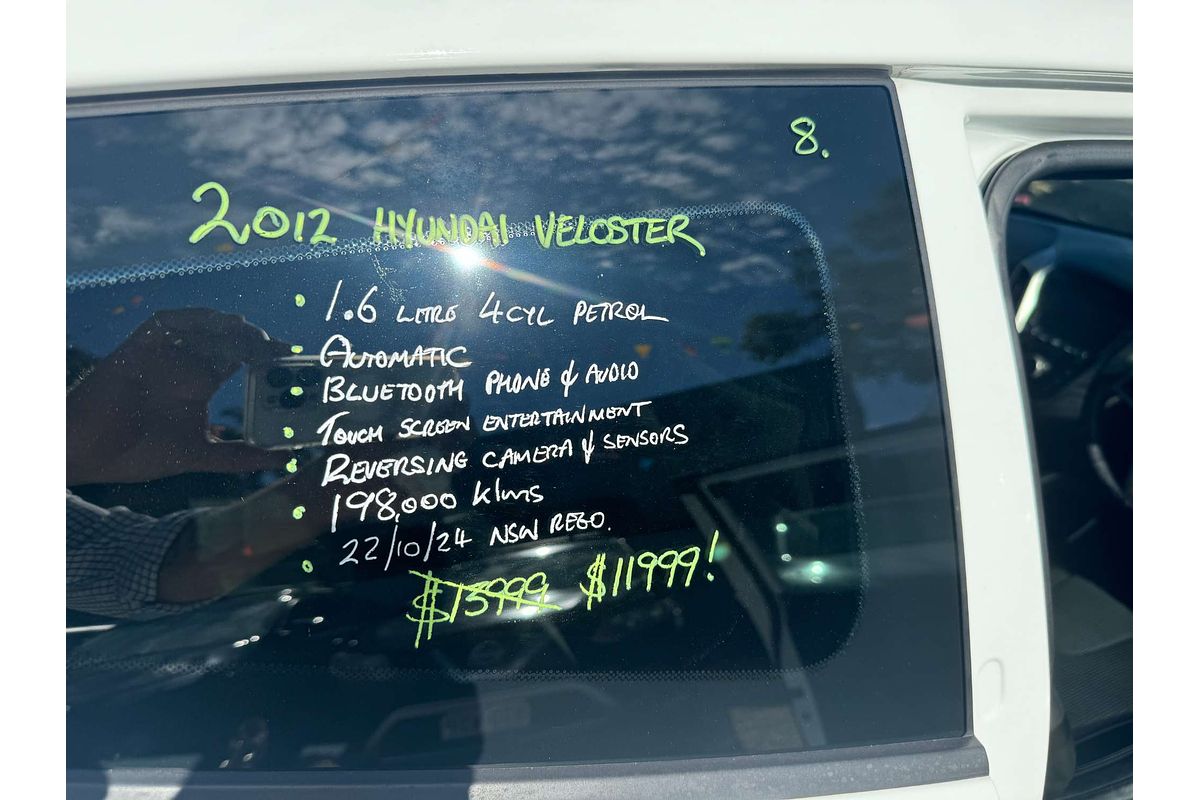 8.
2012 HYUNDAI VELOSTER
• 1.6 LITRE 4CYL PETROL
• AUTOMATIC
• BLUETOOTH PHONE & AUDIO
• TOUCH SCREEN ENTERTAINMENT
• REVERSING CAMERA & SENSORS
• 198,000 klms
• 22/10/24 NSW REGO.
$13999 $11999!